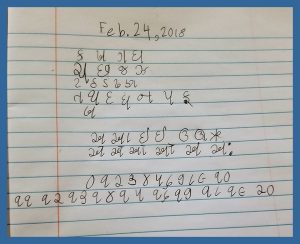 Feb. 24, 2018
ક ખ ગ ઘ
ચ છ જ ઝ
ટ ઠ ડ ઢ ણ
ત થ દ ધ ન પ ફ
બ
અ આ ઇ ઈ ઉ ઊ ઋ
૦ ૧ ૨ ૩ ૪ ૫ ૬ ૭ ૮ ૯ ૧૦
૧૧ ૧૨ ૧૩ ૧૪ ૧૫ ૧૬ ૧૭ ૧૮ ૧૯ ૨૦